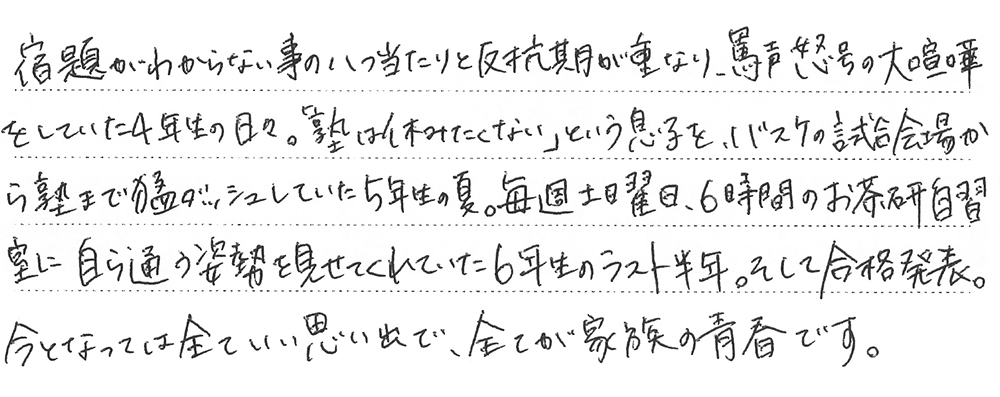 宿題がわからない事の八つ当たりと反抗期が重なり、罵声怒号の大喧嘩
をしていた4年生の日々。「塾は休みたくない」という息子を、バスケの試合会場か
ら塾まで猛ダッシュしていた5年生の夏。毎週土日曜日、6時間のお茶研自習
室に自ら通う姿勢を見せてくれていた6年生のラスト半年。そして合格発表。
今となっては全ていい思い出で、全てが家族の青春です。